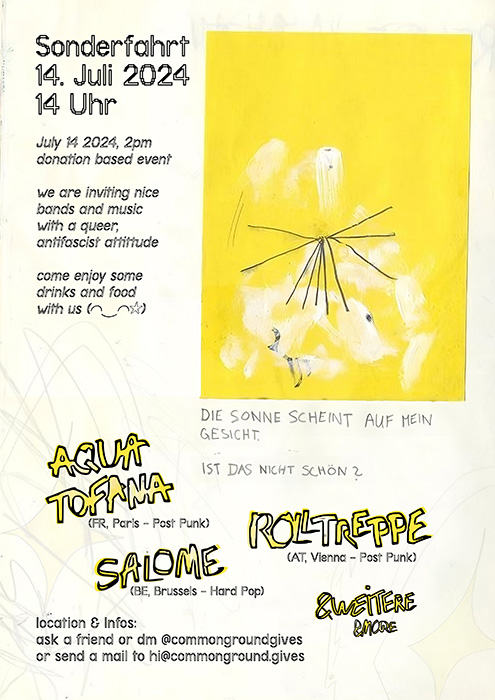 Sonderfahrt
14. Juli 2024
14 Uhr
July 14 2024, 2pm
donation based event
we are inviting nice
bands and music
with a queer,
antifascist attitude
come enjoy some
drinks and food
with us (◠‿◠☆)
DIE SONNE SCHEINT AUF MEIN
GESICHT.
IST DAS NICHT SCHÖN?
AQUA
TOFANA
(FR, Paris – Post Punk)
ROLLTREPPE
(AT, Vienna – Post Punk)
SALOME
(BE, Brussels – Hard Pop)
&WEITERE
&MORE
location & Infos:
ask a friend or dm @commongroundgives
or send a mail to hi@commonground.gives